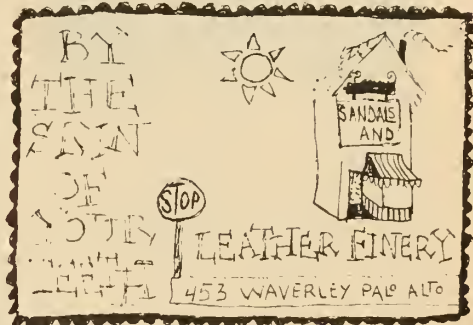 BY
THE
SKIN
OF
YOUR
TEETH
SANDALS
AND
STOP
LEATHER FINERY
453 WAVERLEY PALO ALTO